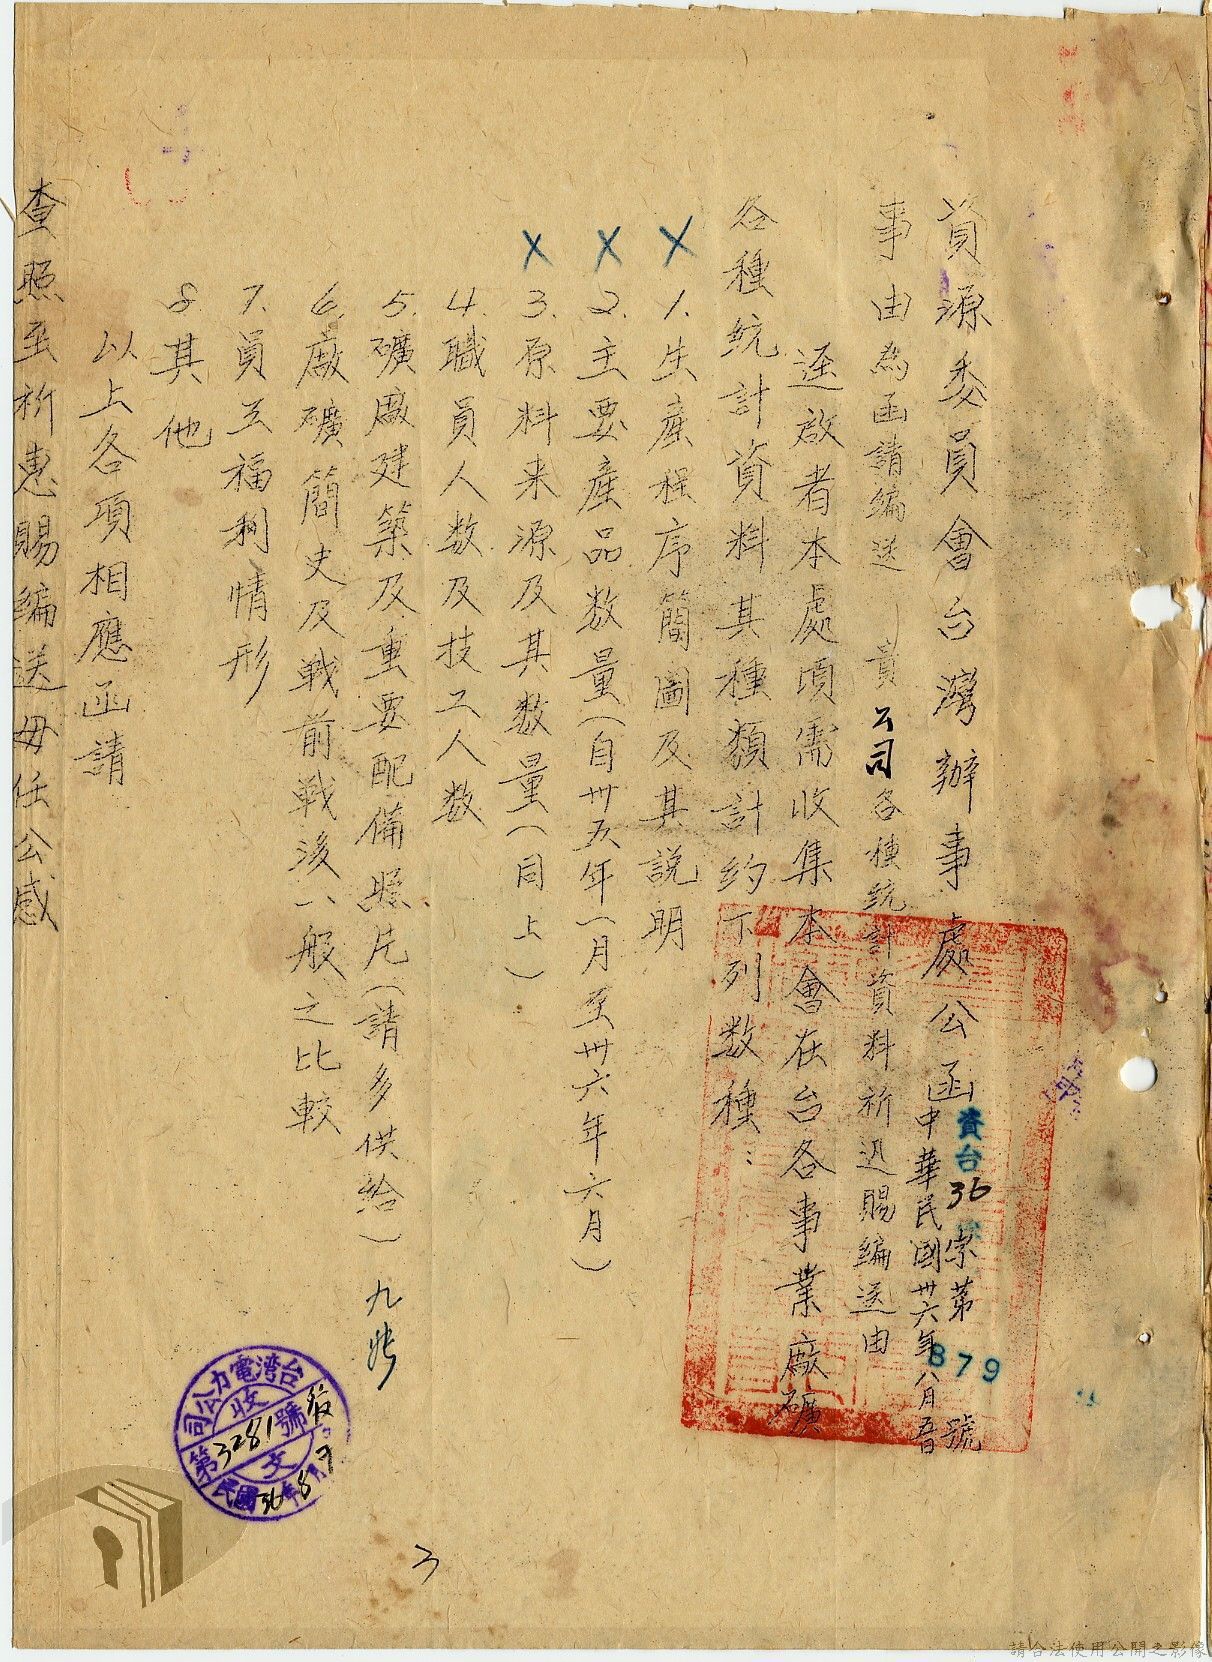 資源委員會台灣辦事處公函
資台36 崇第879號
中華民國卅六年八月五日
事由為函請編送 貴公司各種統計資料祈迅賜編送由
逕啟者本處頃需收集本會在台各事業廠礦
各種統計資料其種類計約下列数種：
1.生產程序簡圖及其説明
2.主要產品数量(自卅五年一月至卅六年六月)
3.原料来源及其数量(同上)
4.職員人数及技工人数
5.礦廠建築及重要配備照片(請多供給) 九張
6.廠礦簡史及戰前戰後一般之比較
7.員工福利情形
8其他
以上各項相應函請
查照至祈惠賜編送毋任公感
台湾電力公司
收文
第3281號
民國36年8月7
3
請合法使用公開之影像